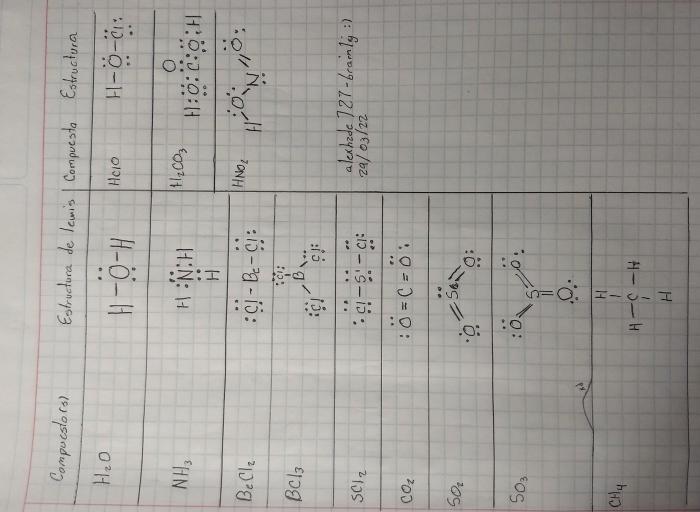 Compuesto(s) Estructura de lewis Compuesto Estructura
H₂O H–Ö–H HClO H–Ö–Cl:
NH₃ H:N:H
H
H₂CO₃ O
H:O:C:O:H
BeCl₂ :Cl–Be–Cl:
HNO₂ H O N O:
BCl₃ :Cl:
B
:Cl Cl:
SCl₂ :Cl–S–Cl:
alexhzde727-brainly :)
29/03/22
CO₂ :O=C=O:
SO₂ S
:O O:
SO₃ :O O:
S
O
CH₄ H
H–C–H
H